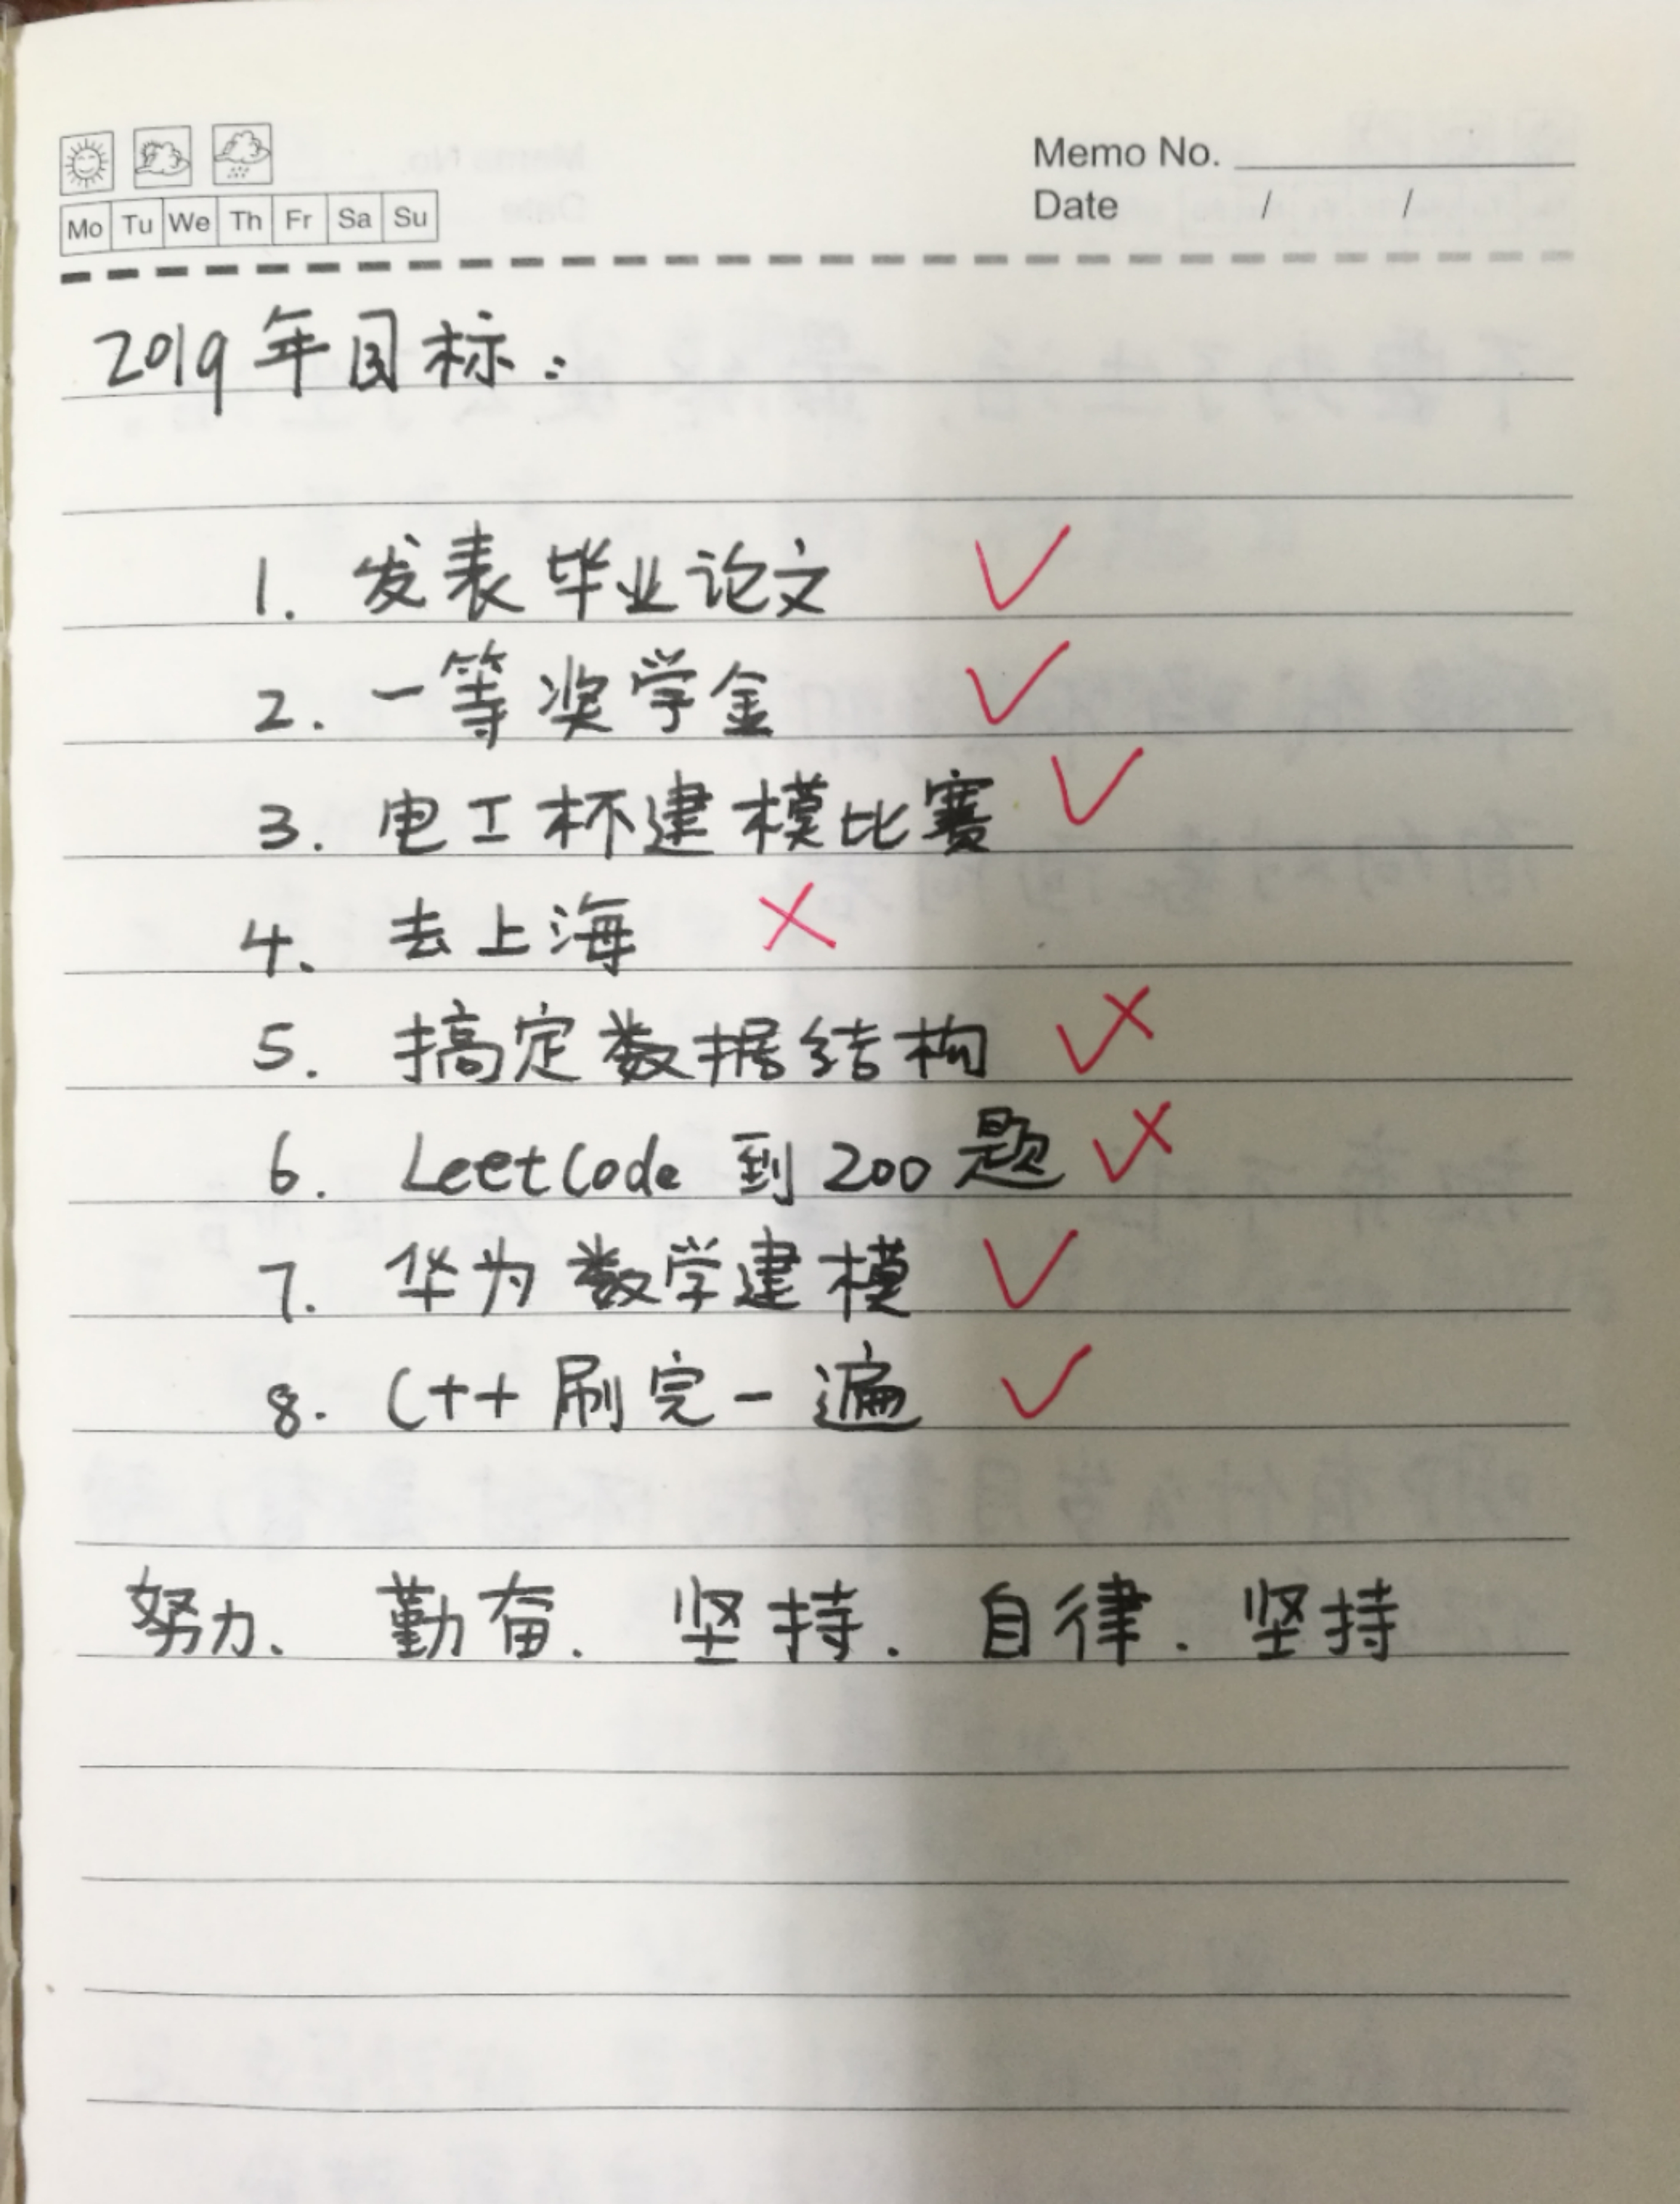 Memo No.
Mo Tu We Th Fr Sa Su
Date / /
2019年目标:
1. 发表毕业论文 ✓
2. 一等奖学金 ✓
3. 电工杯建模比赛 ✓
4. 去上海 ×
5. 搞定数据结构 ✓×
6. LeetCode 到200题 ✓×
7. 华为数学建模 ✓
8. C++刷完一遍 ✓
努力、勤奋. 坚持. 自律. 坚持